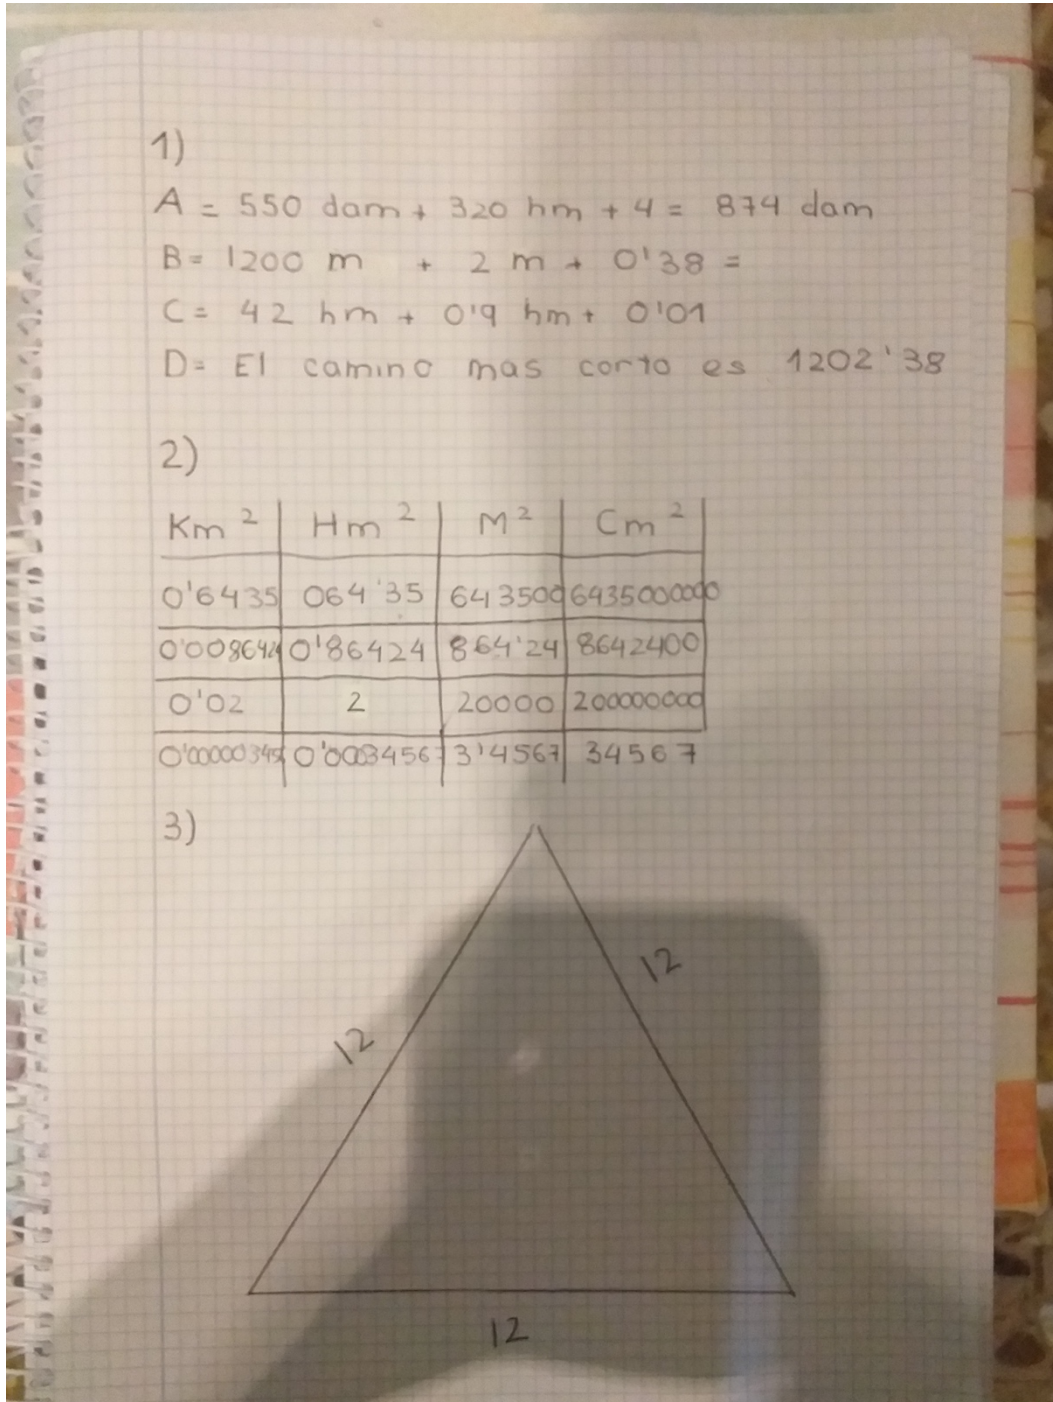 1)
A = 550 dam + 320 hm + 4 = 874 dam
B = 1200 m + 2 m + 0'38 =
C = 42 hm + 0'9 hm + 0'01
D = El camino mas corto es 1202'38
2)
Km² Hm² M² Cm²
0'6435 064'35 643500 6435000000
0'0086424 0'86424 864'24 8642400
0'02 2 20000 200000000
0'00000345 0'0003456 3'4567 34567
3)
12
12
12